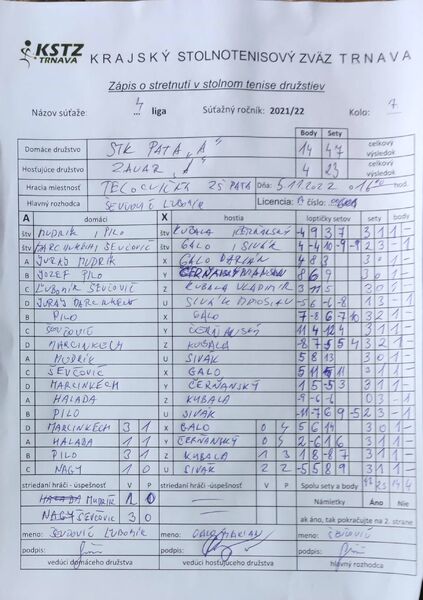 KSTZ
TRNAVA
KRAJSKÝ STOLNOTENISOVÝ ZVÄZ TRNAVA
Zápis o stretnutí v stolnom tenise družstiev
Názov súťaže: 4 liga Súťažný ročník: 2021/22 Kolo: 7
Body Sety
Domáce družstvo STK PATA „A“ 14 47 celkový výsledok
Hosťujúce družstvo ZAVAR „A“ 4 23 celkový výsledok
Hracia miestnosť TELOCVIČŇA ZŠ PATA Dňa: hod.
Hlavný rozhodca ŠEVČOVIČ ĽUBOMÍR Licencia: A číslo:
A domáci X hostia loptičky setov sety body
štv MUDRÍK, PILO KUBALA ČERŇANSKÝ -4 9 3 7 3 1 1 -
štv MARCINKECH, ŠEVČOVIČ GALO, SIVÁK -4 -4 10 -9 2 3 - 1
A JURAJ MUDRÍK X GALO 4 8 3 3 0 1 -
B JOZEF PILO Y 8 6 9 3 1 -
C ĽUBOMÍR ŠEVČOVIČ Z KUBALA VLADIMÍR 3 11 5 3 0 1 -
D JURAJ MARCINKECH U SIVÁK MIROSLAV -5 6 -6 -8 1 3 - 1
B PILO X GALO 7 -8 6 -7 10 3 2 1 -
C ŠEVČOVIČ Y ČERŇANSKÝ 11 4 -12 4 3 1 1 -
D MARCINKECH Z KUBALA -8 7 5 5 4 3 2 1 -
A MUDRÍK U SIVAK 5 8 13 3 0 1 -
C ŠEVČOVIČ X GALO 3 1 1 -
D MARCINKECH Y ČERŇANSKÝ 1 5 -5 3 3 1 1 -
A HALADA Z KUBALA -9 -6 -6 0 3 - 1
B PILO U SIVAK -11 -7 6 9 -5 2 3 - 1
D MARCINKECH 3 1 X GALO 0 4 5 6 14 3 0 1 -
A HALADA 1 1 Y ČERŇANSKÝ 0 4 2 -6 1 6 3 1 1 -
B PILO 3 1 Z KUBALA 1 3 1 8 -8 7 3 1 1 -
C NAGY 1 0 U SIVAK 2 2 -5 5 8 9 3 1 1 -
striedaní hráči - úspešnosť V P striedaní hráči - úspešnosť V P Spolu sety a body 14 4
MUDRÍK 2 0 Námietky Áno Nie
ŠEVČOVIČ 3 0 ak áno, tak pokračujte na 2. strane
meno: ŠEVČOVIČ ĽUBOMÍR meno: GALO MARIAN meno: ŠEVČOVIČ
podpis: podpis: podpis:
vedúci domáceho družstva vedúci hosťujúceho družstva hlavný rozhodca